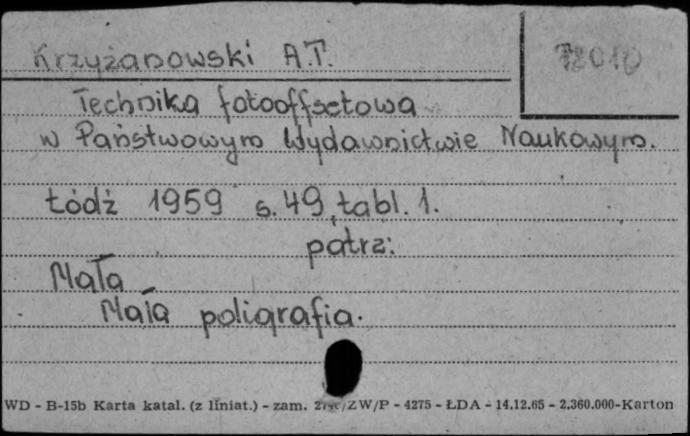 Krzyżanowski A.T.
72010
Technika fotooffsetowa
w Państwowym Wydawnictwie Naukowym.
Łódź 1959 s. 49, tabl. 1.
patrz:
Mała
Mała poligrafia.
WD - B-15b Karta katal. (z liniat.) - zam. ZW/P - 4275 - ŁDA - 14.12.65 - 2.360.000-Karton